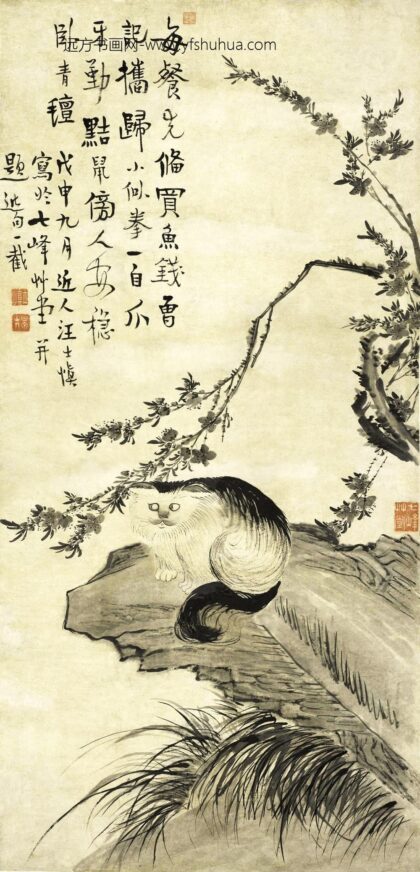 远方书画网-www.yfshuhua.com
每餐先備買魚錢曾
記攜歸小似拳一自爪
牙勤黠鼠傍人安穩
臥青氈
戊申九月近人汪士慎
寫於七峰艸堂并
題近句一截